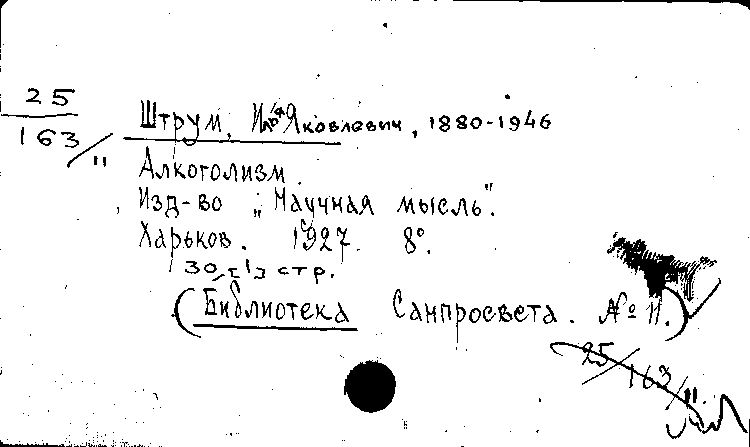 25
163/11
Штрум, Илья Яковлевич, 1880-1946
Алкоголизм.
Изд-во „Научная мысль".
Харьков. 1927. 8°.
30, [1] стр.
(Библиотека Санпросвета. № 11.)
25/163/11.